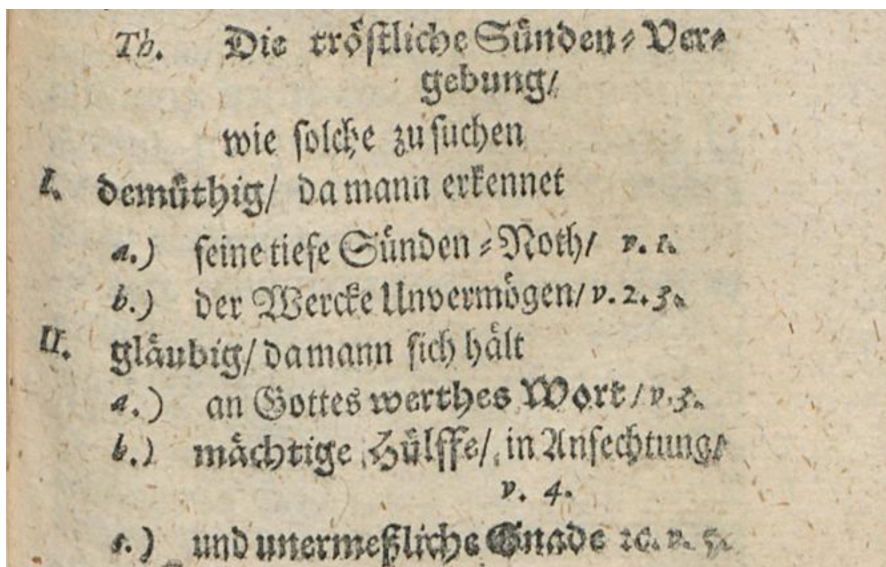 Th. Die tröstliche Sünden-Ver-
gebung/
wie solche zu suchen
I. demüthig/ da mann erkennet
a.) seine tiefe Sünden-Noth/ v. 1.
b.) der Wercke Unvermögen/ v. 2. 3.
II. gläubig/ da mann sich hält
a.) an Gottes werthes Wort/ v. 3.
b.) mächtige Hülffe/ in Anfechtung/
v. 4.
c.) und unermeßliche Gnade ꝛc. v. 5.